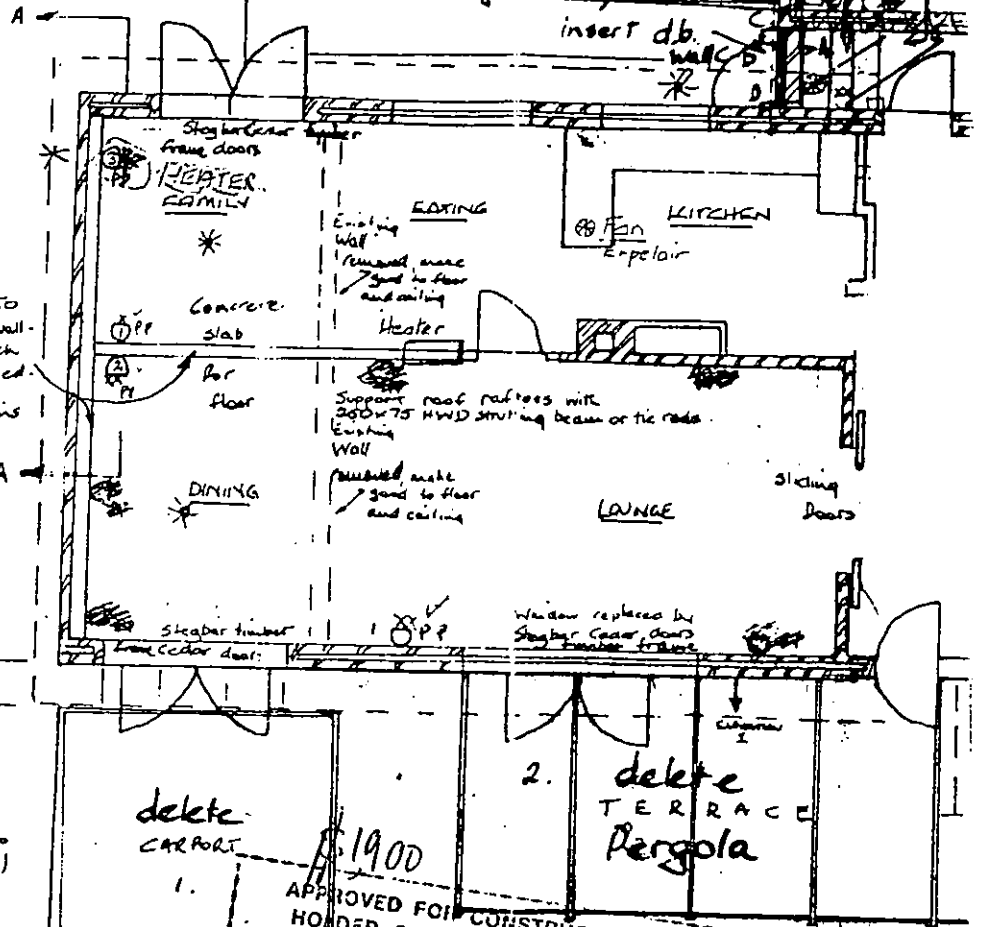 A
insert d.b.
wall
C
B
D
Stegbar Cedar
frame doors
HEATER
FAMILY
EATING
KITCHEN
Fan
Expelair
Existing
Wall
removed, make
good to floor
and ceiling
Concrete
slab
for
floor
Heater
1 PP
2
PP
TO
wall-
ed.
A
Support roof rafters with
250x75 HWD strutting beam or tie rods
Existing
Wall
removed, make
good to floor
and ceiling
DINING
LOUNGE
sliding
Doors
Stegbar timber
frame Cedar door
1 PP
Window replaced by
Stegbar Cedar doors
timber frame
delete
CARPORT
1.
2.
delete
TERRACE
Pergola
1900
APPROVED FOR CONSTRU
HOLDER